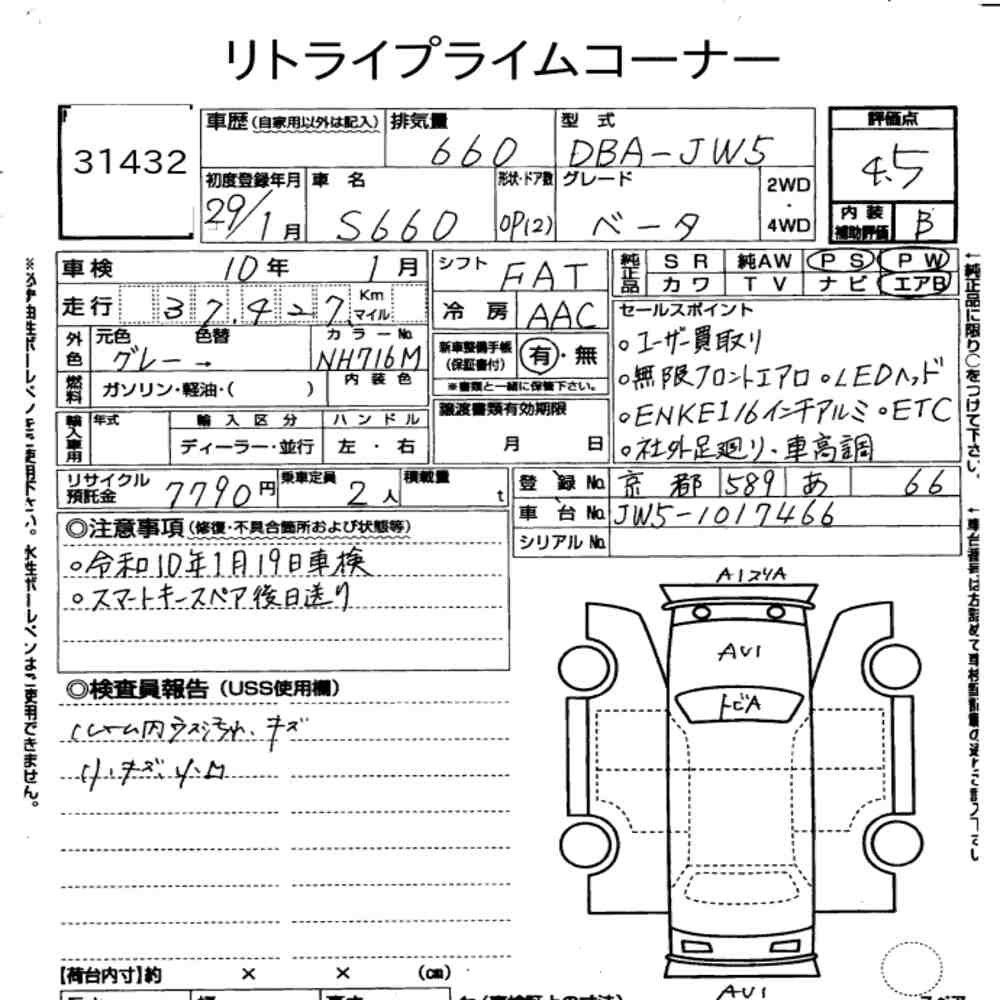 リトライプライムコーナー
31432
車歴(自家用以外は記入) 排気量 660 型式 DBA-JW5 評価点 4.5
初度登録年月 29/1月 車名 S660 形状・ドア数 OP(2) グレード ベータ 2WD・4WD 内装補助評価 B
車検 10年 1月 シフト FAT 純正品 SR 純AW PS PW
カワ TV ナビ エアB
走行 37,427 Km マイル 冷房 AAC セールスポイント
外色 元色 グレー → 色替 カラーNo. NH716M 新車整備手帳(保証書付) 有・無 。ユーザー買取り
※書類と一緒に保管下さい。
燃料 ガソリン・軽油・( ) 内装色 。無限フロントエアロ 。LEDヘッド
輸入車用 年式 輸入区分 ハンドル 譲渡書類有効期限 。ENKEI16インチアルミ 。ETC
ディーラー・並行 左・右 月 日 。社外足廻り、車高調
リサイクル預託金 7790円 乗車定員 2人 積載量 t 登録No. 京都 589 あ 66
車台No. JW5-1017466
シリアルNo.
◎注意事項(修復・不具合箇所および状態等)
。令和10年1月19日車検
。スマートキースペア後日送り
◎検査員報告(USS使用欄)
小キズ、小凹
A1
AU1
トビA
AU1
【荷台内寸】約 × × (cm)
※必ず油性ボールペンをご使用下さい。水性ボールペンはご使用できません。
←純正品に限り○をつけて下さい。